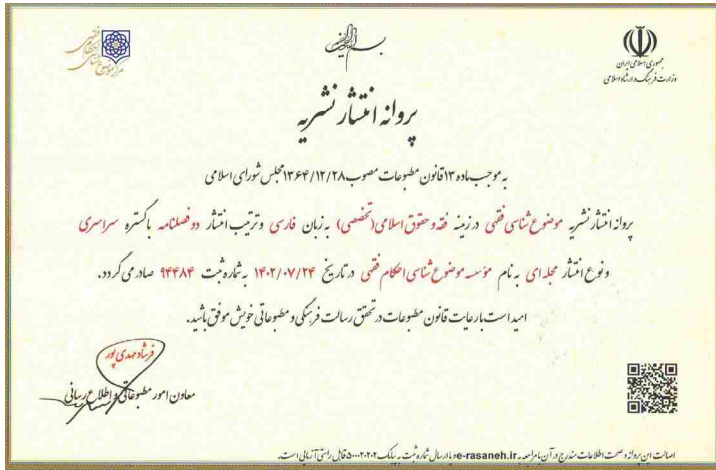 جمهوری اسلامی ایران
وزارت فرهنگ و ارشاد اسلامی
پروانه انتشار نشریه
به موجب ماده ۱۳ قانون مطبوعات مصوب ۱۳۶۴/۱۲/۲۸ مجلس شورای اسلامی
پروانه انتشار نشریه موضوع شناسی فقهی در زمینه فقه و حقوق اسلامی (تخصصی) به زبان فارسی و ترتیب انتشار دو فصلنامه با گستره سراسری
و نوع انتشار مجله ای به نام مؤسسه موضوع شناسی احکام فقهی در تاریخ ۱۴۰۲/۰۷/۲۴ به شماره ثبت ۹۴۴۸۴ صادر می گردد.
امید است با رعایت قانون مطبوعات در تحقق رسالت فرهنگی و مطبوعاتی خویش موفق باشید.
فرشاد مهدی پور
معاون امور مطبوعاتی و اطلاع رسانی
اصالت این پروانه و صحت اطلاعات مندرج در آن با مراجعه به e-rasaneh.ir و با ارسال شماره ثبت به پیامک ۵۰۰۰۲۰۲۰۲ قابل راستی آزمایی است.